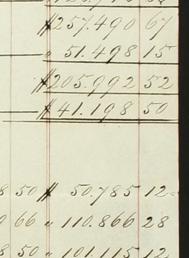 $257.490 67
" 51.498 15
$205.992 52
$41.198 50
50 $ 50.785 12
66 " 110.866 28
50 " 101.115 12